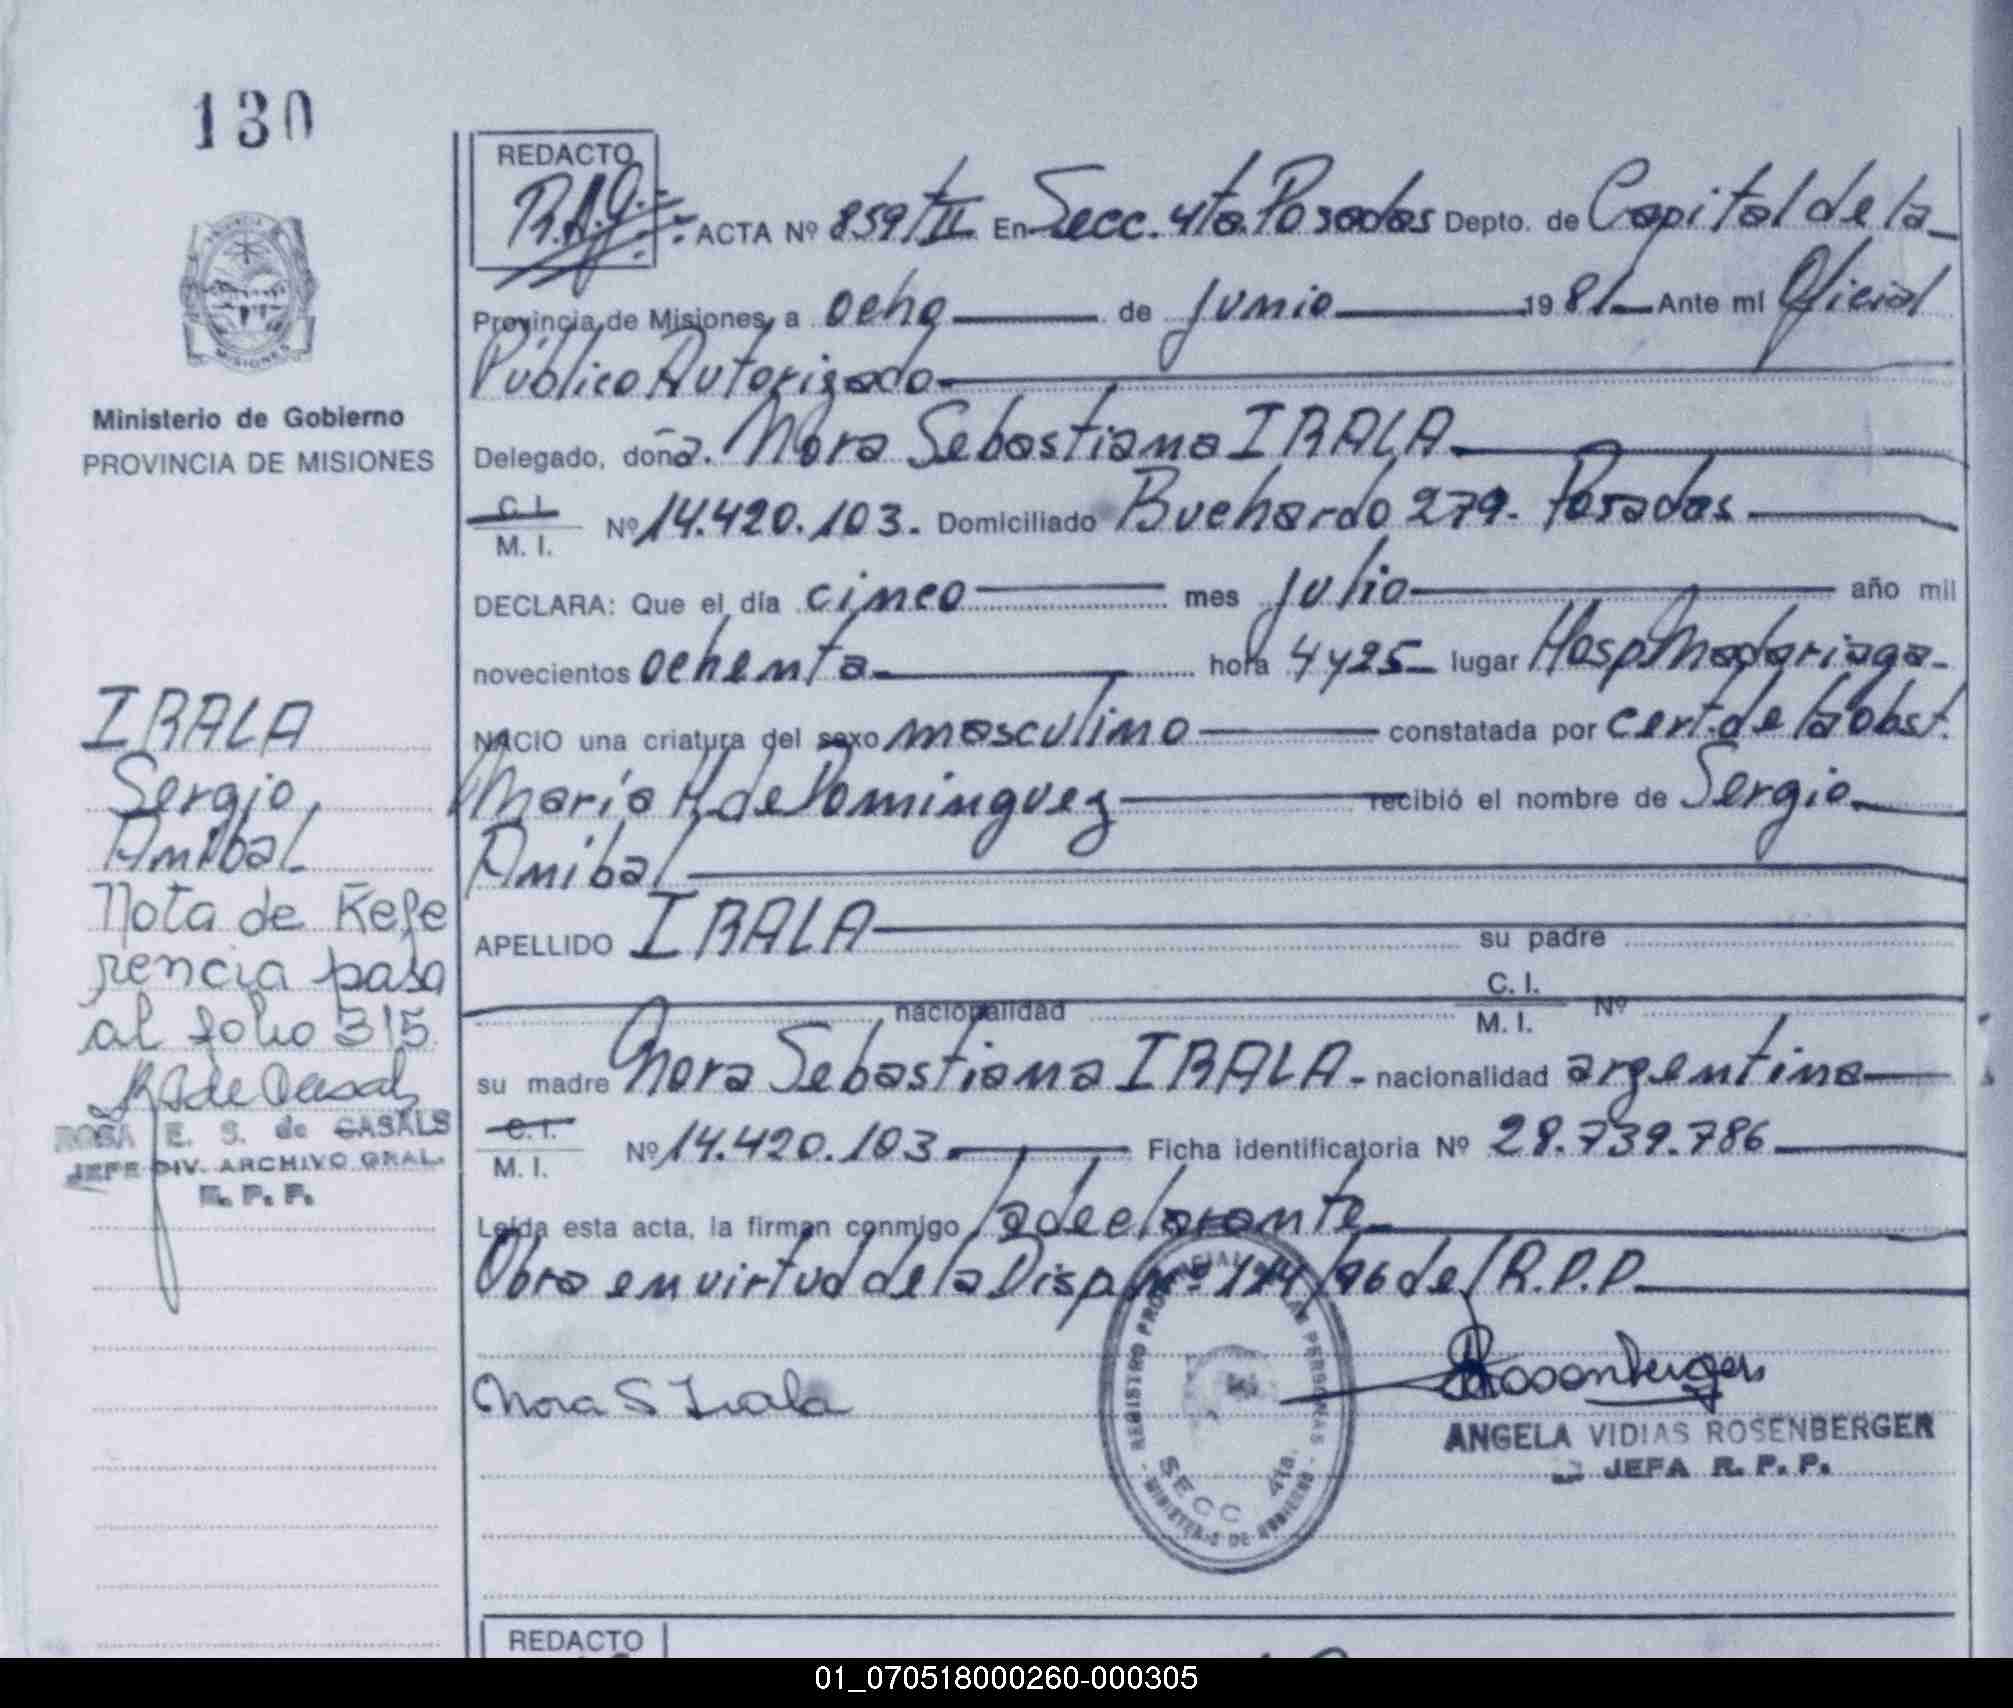 130
Ministerio de Gobierno
PROVINCIA DE MISIONES
IRALA
Sergio
Anibal
Nota de Refe
rencia pasa
al folio 315
ROSA E. S. de CASALS
JEFE DIV. ARCHIVO GRAL.
R. P. P.
REDACTO
R.A.G. ACTA Nº 859/TII En Secc. 4ta. Posadas Depto. de Capital de la
Provincia de Misiones, a ocho de junio 1981 Ante mí Oficial
Público Autorizado
Delegado, doña. Nora Sebastiana IRALA
C. I.
M. I. Nº 14.420.103. Domiciliado Buchardo 279. Posadas
DECLARA: Que el día cinco mes julio año mil
novecientos ochenta hora 4 y 25 lugar Hosp. Madariaga
NACIO una criatura del sexo masculino constatada por cert. de la obst.
María H. de Dominguez recibió el nombre de Sergio
Anibal
APELLIDO IRALA su padre
nacionalidad C. I. M. I. Nº
su madre Nora Sebastiana IRALA - nacionalidad argentina
C. I.
M. I. Nº 14.420.103 Ficha identificatoria Nº 28.739.786
Leída esta acta, la firman conmigo la declarante
Obra en virtud de la Disp. Nº /96 del R.P.P.
Nora S Irala
Rosenberger
REGISTRO PROVINCIAL DE LAS PERSONAS
SECC 4ta.
MINISTERIO DE GOBIERNO
ANGELA VIDIAS ROSENBERGER
JEFA R. P. P.
REDACTO
01_070518000260-000305